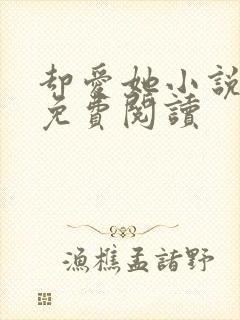 却愛她小說
免費閱讀
漁樵孟諸野